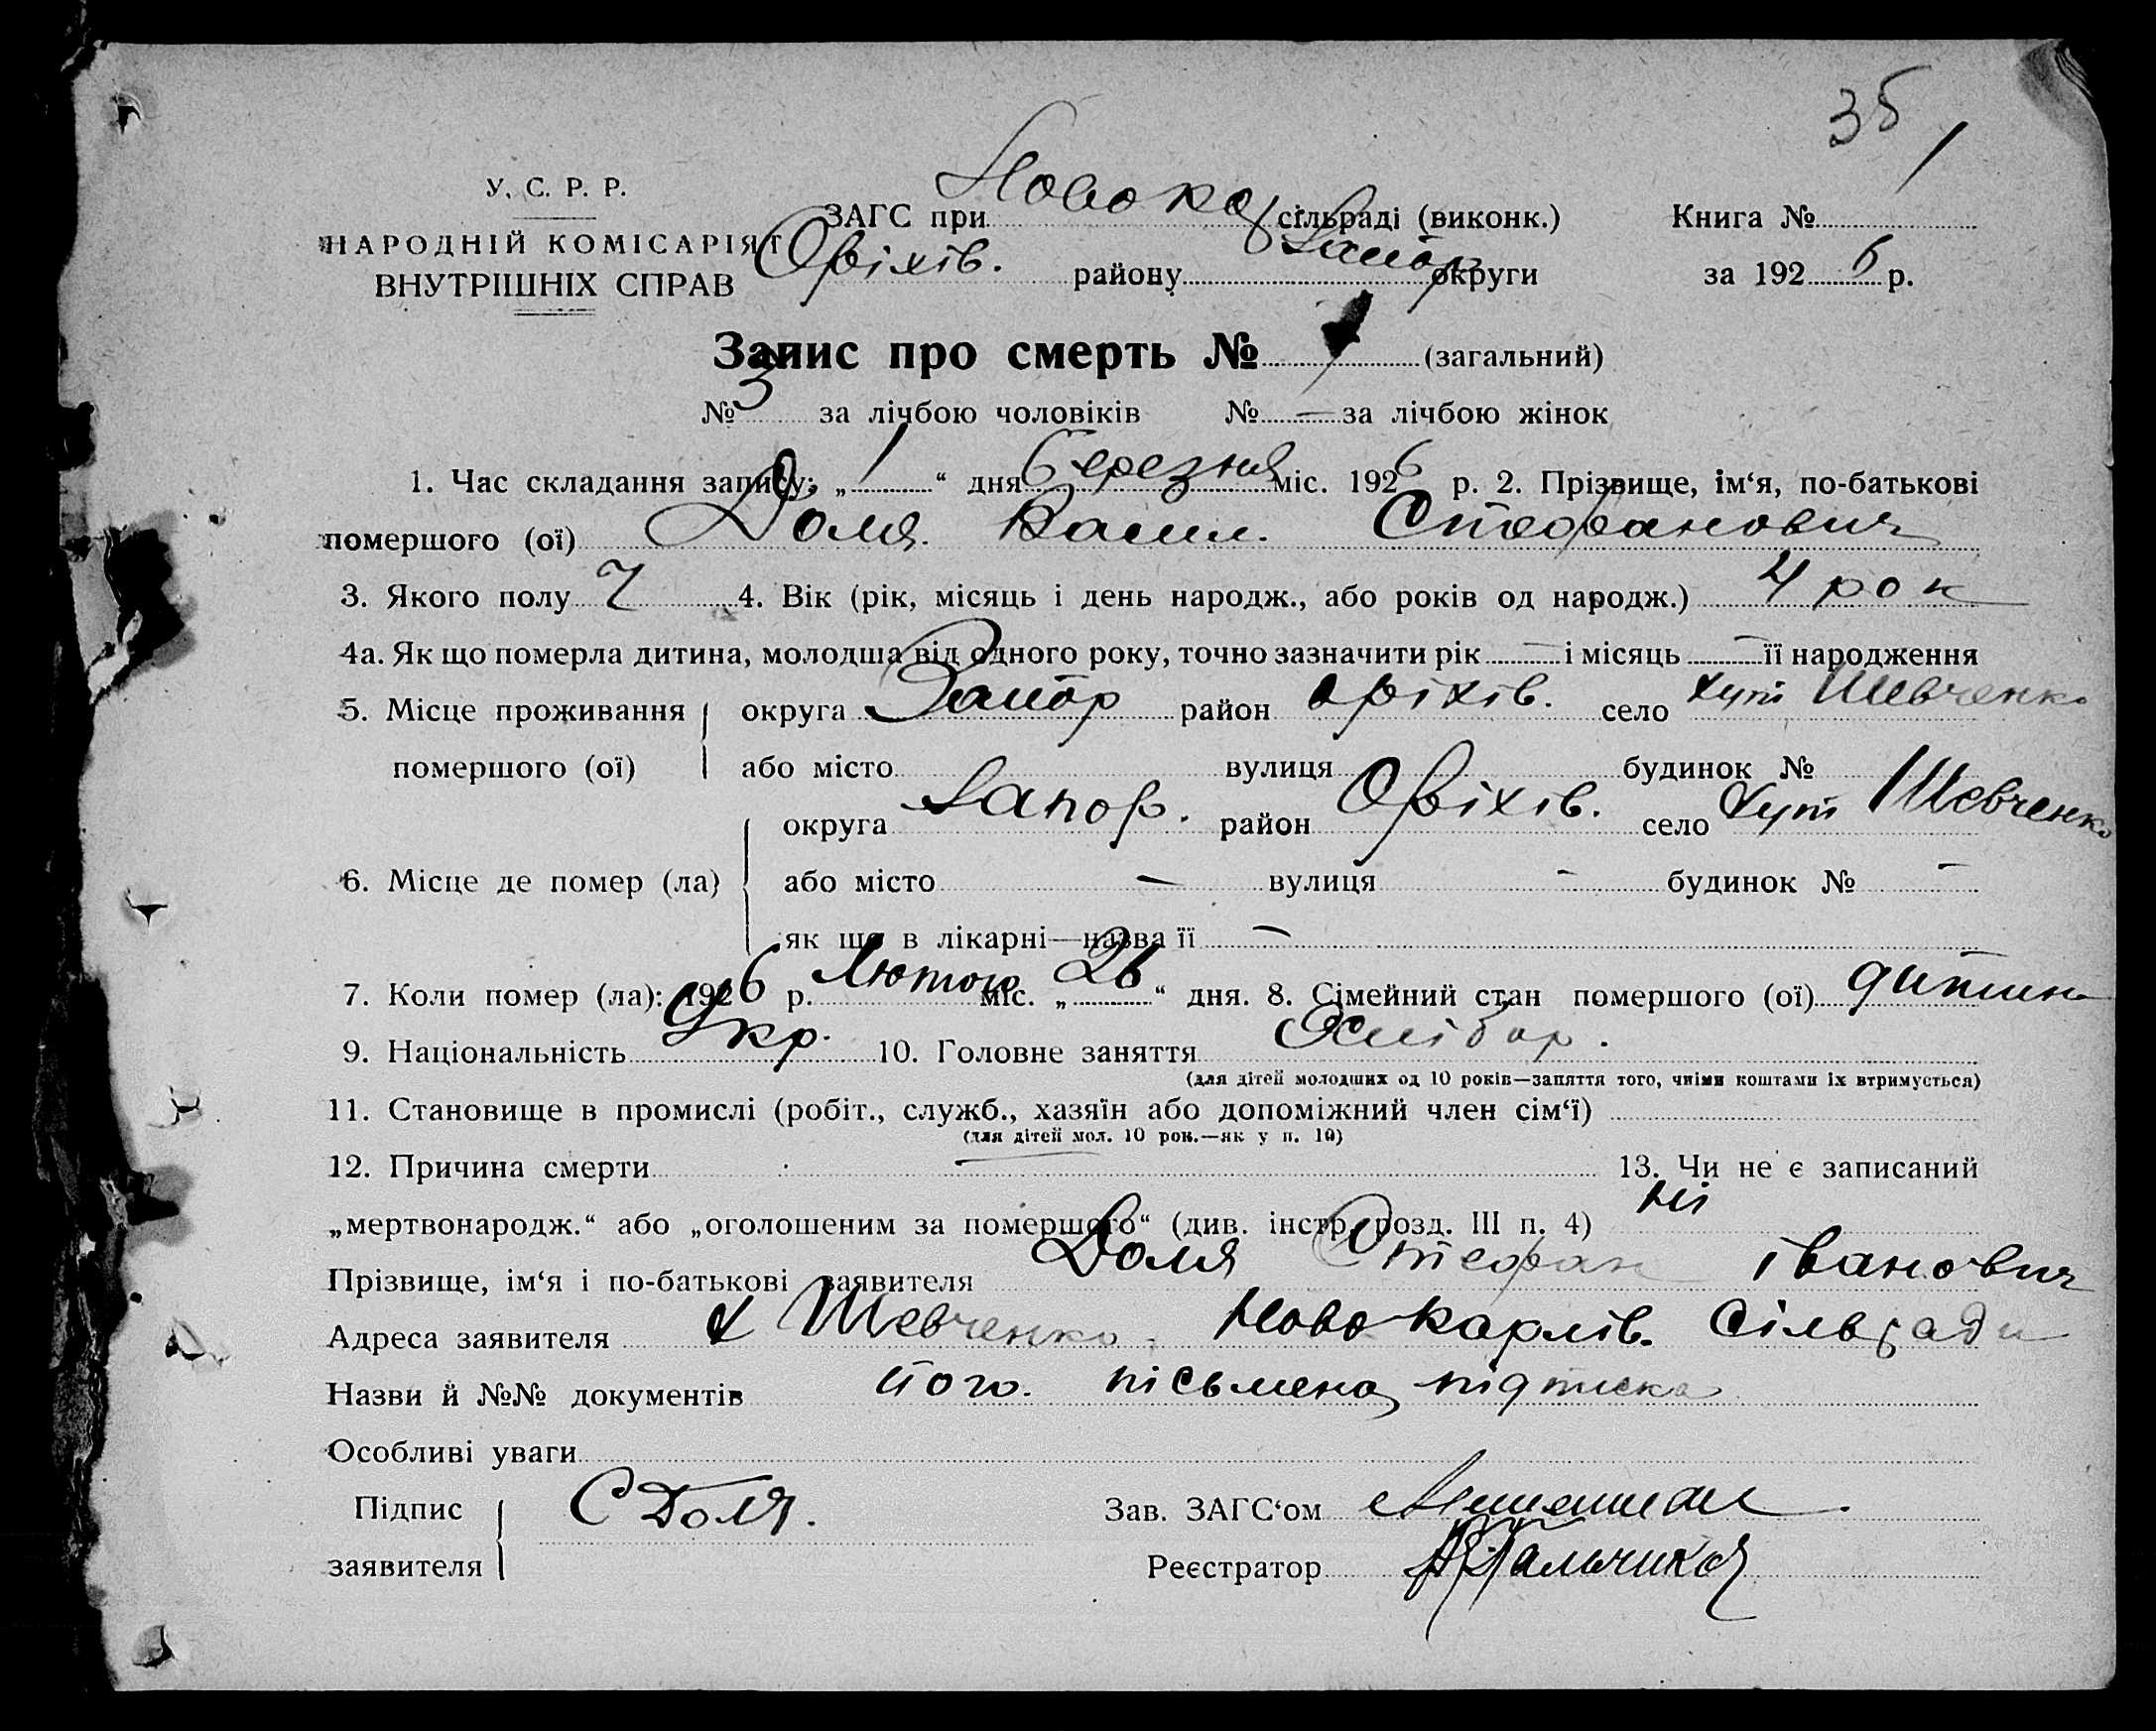 35
У. С. Р. Р.
НАРОДНІЙ КОМІСАРІЯТ
ВНУТРІШНІХ СПРАВ
ЗАГС при Новокар сільраді (виконк.) Книга №
Оріхів. району Запор округи за 1926 р.
Запис про смерть № (загальний)
№ 3 за лічбою чоловіків № — за лічбою жінок
1. Час складання запису: „ 1 “ дня березня міс. 1926 р. 2. Прізвище, ім‘я, по-батькові
помершого (ої) Доля. Васил. Стефанович
3. Якого полу Ч 4. Вік (рік, місяць і день народж., або років од народж.) 4 рок
4а. Як що померла дитина, молодша від одного року, точно зазначити рік — і місяць — її народження
5. Місце проживання округа Запор район Оріхів. село хут Шевченко
помершого (ої) або місто вулиця будинок №
округа Запор. район Оріхів. село Хут Шевченко
6. Місце де помер (ла) або місто — вулиця - будинок № —
як що в лікарні—назва її —
7. Коли помер (ла): 1926 р. Лютого міс. „ 26 “ дня. 8. Сімейний стан помершого (ої) дитина
9. Національність Укр. 10. Головне заняття Хлібор.
(для дітей молодших од 10 років—заняття того, чиїми коштами їх втримується)
11. Становище в промислі (робіт., служб., хазяїн або допоміжний член сім‘ї)
(для дітей мол. 10 рок.—як у п. 10)
12. Причина смерти — 13. Чи не є записаний
„мертвонародж.“ або „оголошеним за помершого“ (див. інстр. розд. III п. 4) ні
Прізвище, ім‘я і по-батькові заявителя Доля Стефан Іванович
Адреса заявителя х Шевченко. Ново Карлів. Сільради
Назви й №№ документів його. пісьмена підписка
Особливі уваги
Підпис С Доля. Зав. ЗАГС‘ом
заявителя Реєстратор